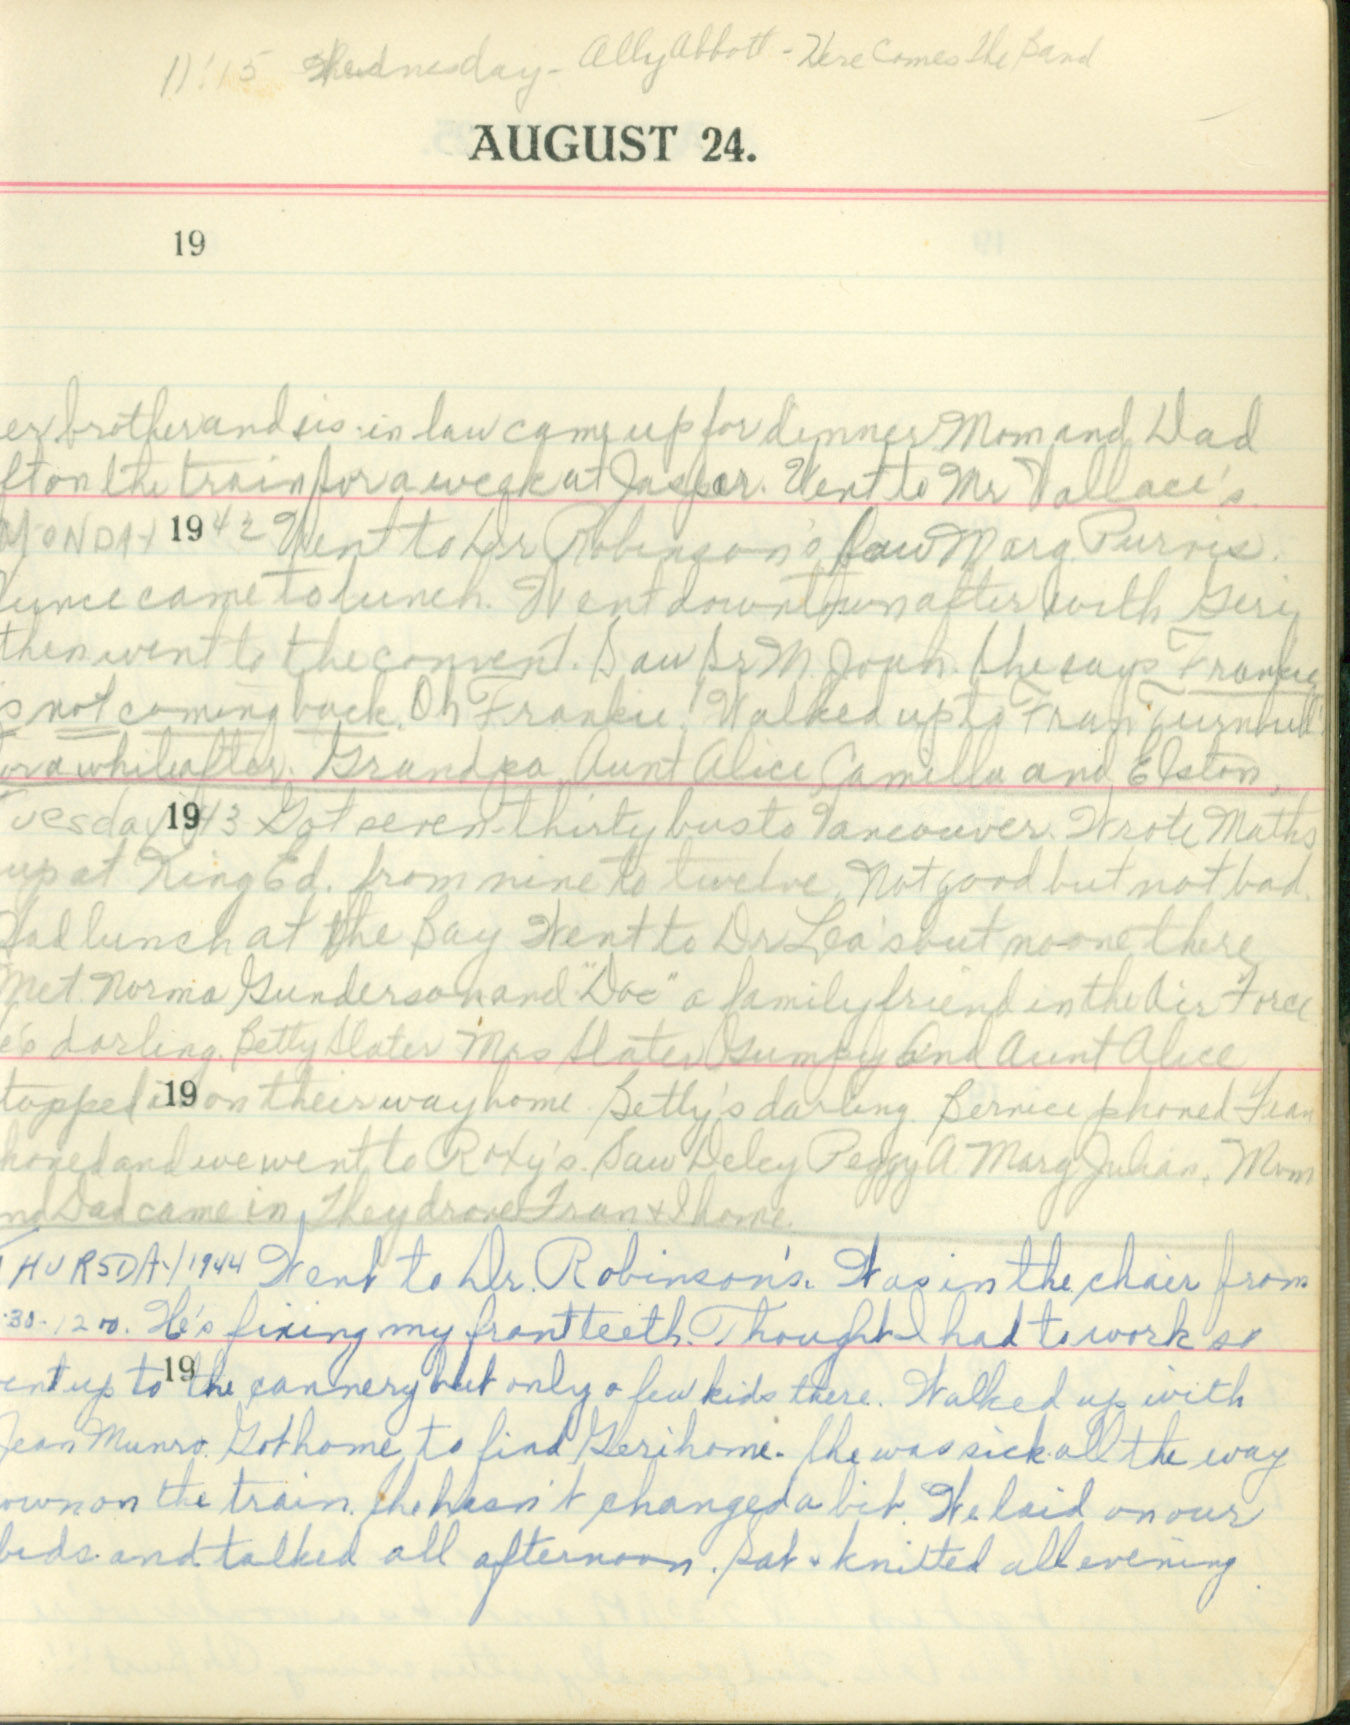 11:15 Wednesday - Ally Abbott - Here Comes The Band
AUGUST 24.
19
er brother and sis-in law came up for dinner. Mom and Dad
ft on the train for a week at Jasper. Went to Mr Wallace's.
MONDAY 1942 Went to Dr Robinson's. Saw Marg. Purvis.
came to lunch. Went downtown after with Geri
then went to the convent. Saw Sr M. Joan. She says Frankie
s not coming back. Oh Frankie! Walked up to Fran
or a while after. Grandpa, Aunt Alice, Camilla and Elston.
Tuesday 1943 Got seven-thirty bus to Vancouver. Wrote Maths
up at King Ed. from nine to twelve. Not good but not bad.
Had lunch at the Bay Went to Dr Lea's but no-one there
Met Norma Gunderson and "Doc" a family friend in the Air Force
e's darling. Betty Slater Mrs Slater and Aunt Alice
topped 19 on their way home. Betty's darling. Bernice phoned Fran
honed and we went to Roxy's. Saw Peggy A. Marg Julian. Mom
nd Dad came in. They drove Fran & I home.
THURSDAY 1944 Went to Dr. Robinson's. Was in the chair from
:30-12 00. He's fixing my front teeth. Thought I had to work so
ent up to 19 the cannery but only a few kids there. Walked up with
Jean Munro. Got home to find Geri home. She was sick all the way
own on the train. She hasn't changed a bit. We laid on our
beds and talked all afternoon. Sat & knitted all evening